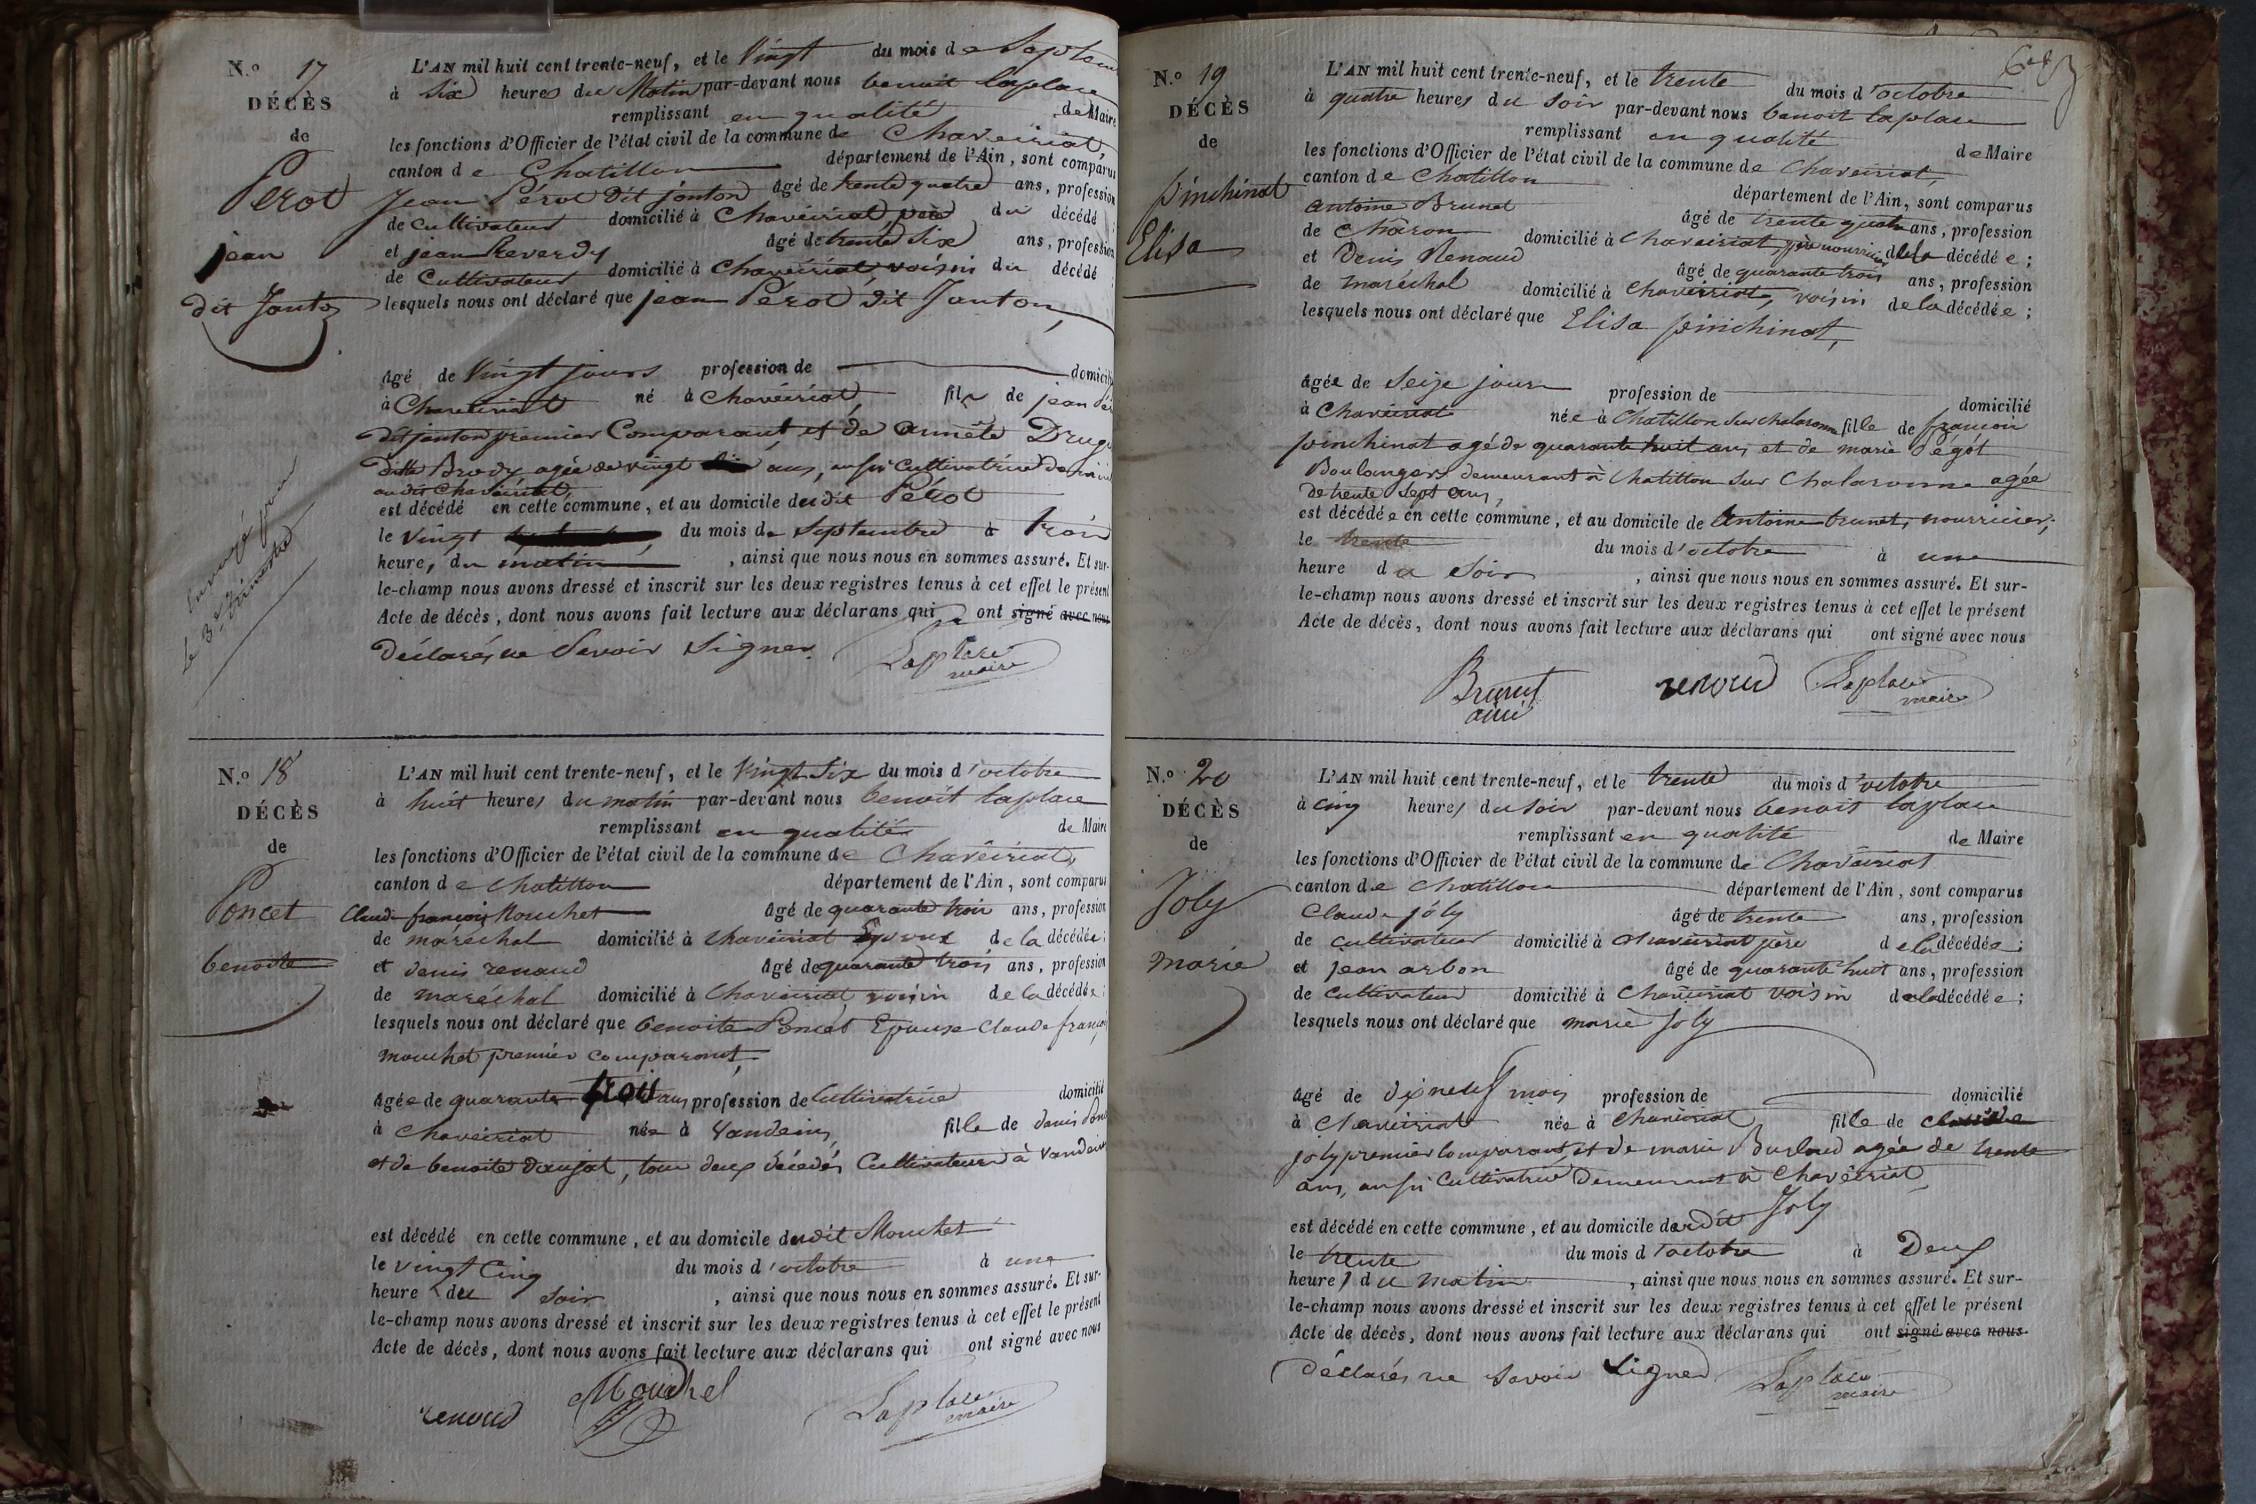 N.º 17
DÉCÈS
de
Perot
jean
dit Janton
L'AN mil huit cent trente-neuf, et le Vingt du mois de Septem
à Six heures du Matin par-devant nous benoit laplace
remplissant en qualité de Maire
les fonctions d'Officier de l'état civil de la commune de Chaveiriat,
canton de Chatillon département de l'Ain, sont comparus
Jean Pérot dit janton âgé de trente quatre ans, profession
de Cultivateur domicilié à Chaveiriat, père du décédé ;
et jean Reverdy âgé de trente Six ans, profession
de Cultivateur domicilié à Chaveiriat, voisin du décédé
lesquels nous ont déclaré que jean Pérot dit Janton,
âgé de Vingt jours profession de domicilié
à Chaveiriat né à Chaveiriat, fils de jean
dit janton premier Comparant et de
ditte agée de vingt ans, aussi Cultivatrice
au dit Chaveiriat,
est décédé en cette commune, et au domicile dudit Pérot
le vingt du mois de Septembre à trois
heure, du matin, ainsi que nous nous en sommes assuré. Et sur-
le-champ nous avons dressé et inscrit sur les deux registres tenus à cet effet le présent
Acte de décès, dont nous avons fait lecture aux déclarans qui ont signé avec nous
Déclarés ne Savoir Signer. Laplace
maire
le 3e trimestre
N.º 18
DÉCÈS
de
Poncet
benoite
L'AN mil huit cent trente-neuf, et le Vingt Six du mois d'octobre
à huit heures du matin par-devant nous benoit laplace
remplissant en qualité de Maire
les fonctions d'Officier de l'état civil de la commune de Chaveiriat,
canton de Chatillon département de l'Ain, sont comparus
Claude françois Mouchet âgé de quarante trois ans, profession
de maréchal domicilié à Chaveiriat Epoux de la décédée ;
et denis renaud âgé de quarante trois ans, profession
de maréchal domicilié à Chaveiriat voisin de la décédée ;
lesquels nous ont déclaré que benoite Poncet Epouse Claude françois
mouchet premier comparant,
âgée de quarante trois ans profession de Cultivatrice domicilié
à Chaveiriat née à Vandeins, fille de denis
et de benoite Daujat, tous deux décédés Cultivateurs à Vandeins
est décédé en cette commune, et au domicile dudit Mouchet
le vingt Cinq du mois d'octobre à une
heure du soir, ainsi que nous nous en sommes assuré. Et sur-
le-champ nous avons dressé et inscrit sur les deux registres tenus à cet effet le présent
Acte de décès, dont nous avons fait lecture aux déclarans qui ont signé avec nous
renoud Mouchel Laplace
maire
N.º 19
DÉCÈS
de
pinchinat
Elisa
L'AN mil huit cent trente-neuf, et le trente du mois d'octobre
à quatre heures du soir par-devant nous benoit laplace
remplissant en qualité de Maire
les fonctions d'Officier de l'état civil de la commune de Chaveiriat,
canton de Chatillon département de l'Ain, sont comparus
antoine Brunet âgé de trente quatre ans, profession
de Charon domicilié à Chaveiriat, père nourricier de la décédée ;
et Denis Renaud âgé de quarante trois ans, profession
de maréchal domicilié à Chaveiriat, voisin de la décédée ;
lesquels nous ont déclaré que Elisa pinchinat,
âgée de Seize jours profession de domicilié
à Chaveiriat née à Chatillon sur chalaronne fille de françois
pinchinat agé de quarante huit ans, et de marie Pégot
Boulangers demeurant à Chatillon sur Chalaronne agée
de trente sept ans,
est décédée en cette commune, et au domicile de Antoine brunet, nourricier,
le trente du mois d'octobre à une
heure du soir, ainsi que nous nous en sommes assuré. Et sur-
le-champ nous avons dressé et inscrit sur les deux registres tenus à cet effet le présent
Acte de décès, dont nous avons fait lecture aux déclarans qui ont signé avec nous
Brunet renoud Laplace
ainé maire
N.º 20
DÉCÈS
de
Joly
marie
L'AN mil huit cent trente-neuf, et le trente du mois d'octobre
à cinq heures du soir par-devant nous benoit laplace
remplissant en qualité de Maire
les fonctions d'Officier de l'état civil de la commune de Chaveiriat
canton de Chatillon département de l'Ain, sont comparus
Claude joly âgé de trente ans, profession
de cultivateur domicilié à chaveiriat père de la décédée ;
et jean arbon âgé de quarante huit ans, profession
de Cultivateur domicilié à Chaveiriat voisin de la décédée ;
lesquels nous ont déclaré que marie Joly
âgé de dix neuf mois profession de domicilié
à Chaveiriat née à Chaveiriat, fille de claude
joly premier Comparant, et de marie Burloud agée de trente
ans, aussi Cultivatrice Demeurant à Chaveiriat,
est décédé en cette commune, et au domicile dudit Joly
le trente du mois d'octobre à Deux
heures du matin, ainsi que nous nous en sommes assuré. Et sur-
le-champ nous avons dressé et inscrit sur les deux registres tenus à cet effet le présent
Acte de décès, dont nous avons fait lecture aux déclarans qui ont signé avec nous
déclarés ne Savoir Signer Laplace
maire